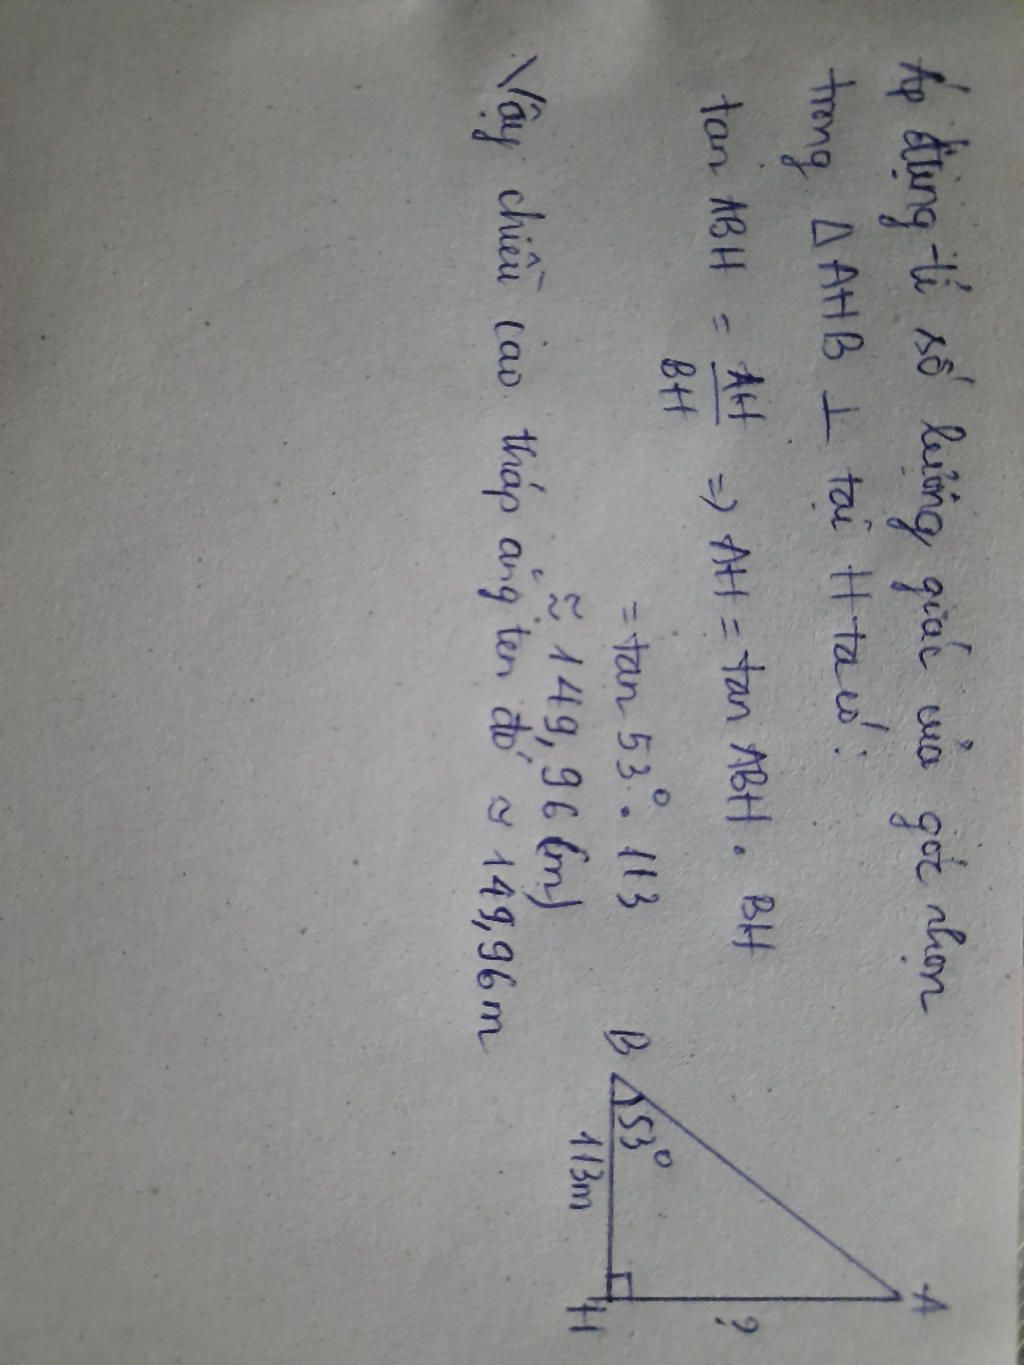 Áp dụng tỉ số lượng giác của góc nhọn
trong Δ AHB ⊥ tại H ta có:
tan ABH = AH/BH => AH = tan ABH . BH
= tan 53° . 113
≈ 149,96 (m)
Vậy chiều cao tháp ăng ten đó ≈ 149,96 m
A
B 53°
?
113m
H